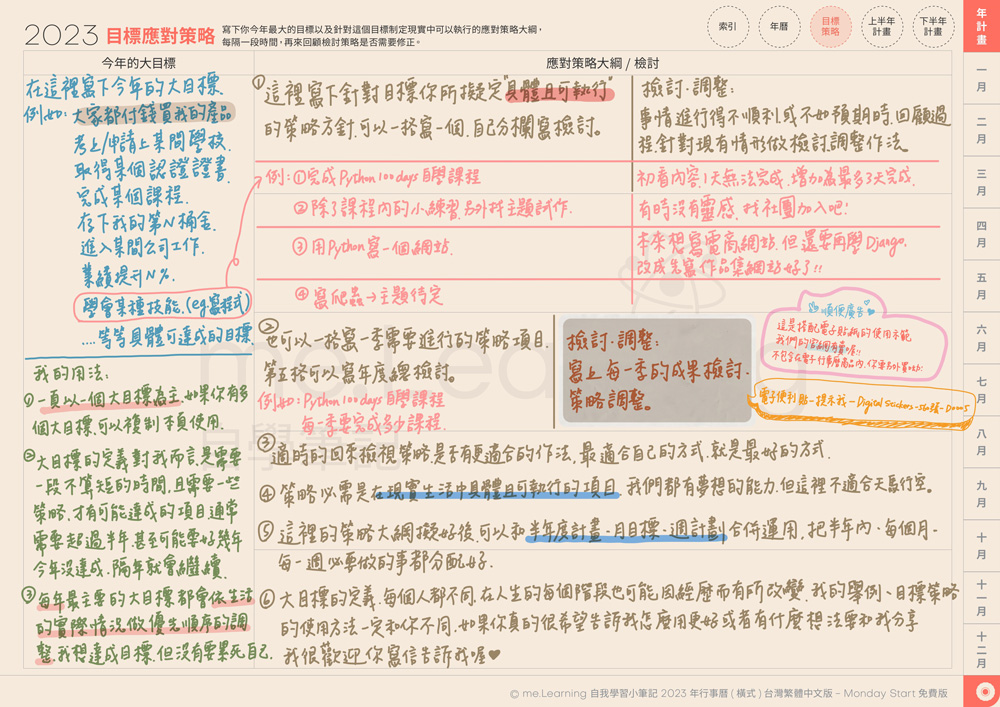 2023 目標應對策略
寫下你今年最大的目標以及針對這個目標制定現實中可以執行的應對策略大綱,
每隔一段時間,再來回顧檢討策略是否需要修正。
索引
年曆
目標
策略
上半年
計畫
下半年
計畫
年計畫
一月
二月
三月
四月
五月
六月
七月
八月
九月
十月
十一月
十二月
今年的大目標
在這裡寫下今年的大目標.
例如:大家都付錢買我的產品
考上/申請上某間學校.
取得某個認證證書.
完成某個課程.
存下我的第N桶金.
進入某間公司工作.
業績提升N%.
學會某種技能.(eg.寫程式)
....等等具體可達成的目標.
我的用法:
①一頁以一個大目標為主,如果你有多
個大目標,可以複製本頁使用.
②大目標的定義對我而言,是需要
一段不算短的時間,且需要一些
策略,才有可能達成的項目,通常
需要超過半年,甚至可能要好幾年
今年沒達成,隔年就會繼續.
③每年最主要的大目標都會依生活
的實際情況做優先順序的調
整,我想達成目標,但沒有要累死自己.
應對策略大綱 / 檢討
①這裡寫下針對目標你所擬定"具體且可執行"
的策略方針,可以一格寫一個,自己分欄寫檢討。
檢討.調整:
事情進行得不順利,或不如預期時,回顧過
程,針對現有情形做檢討,調整作法。
例:①完成Python 100days自學課程
初看內容,1天無法完成,增加為最多3天完成.
②除了課程內的小練習,另外找主題試作.
有時沒有靈感,找社團加入吧!
③用Python寫一個網站.
本來想寫電商網站,但還要再學Django.
改成先寫作品集網站好了!!
④寫爬蟲→主題待定
②也可以一格寫一季需要進行的策略項目.
第五格可以寫年度總檢討。
例如:Python 100days自學課程
每一季要完成多少課程.
檢討.調整:
寫上每一季的成果檢討.
策略調整。
順便廣告
這是搭配電子貼紙的使用示範
我們的官網有賣喔!!
不包含在電子行事曆商品內,保要另外買哦:
電子便利貼-提示我-Digital Stickers-516張-Doc05
③適時的回來檢視策略,是否有更適合的作法,最適合自己的方式,就是最好的方式.
④策略必需是在現實生活中具體且可執行的項目,我們都有夢想的能力,但這裡不適合天馬行空。
⑤這裡的策略大綱擬好後,可以和半年度計畫.月目標.週計劃合併運用,把半年內.每個月.
每一週必要做的事都分配好.
⑥大目標的定義,每個人都不同,在人生的每個階段也可能因經歷而有所改變.我的舉例、目標策略
的使用方法一定和你不同,如果你真的很希望告訴我怎麼用更好或者有什麼想法要和我分享
我很歡迎你寫信告訴我喔♥
me.Learning
自學筆記
© me.Learning 自我學習小筆記 2023 年行事曆 ( 橫式 ) 台灣繁體中文版 - Monday Start 免費版